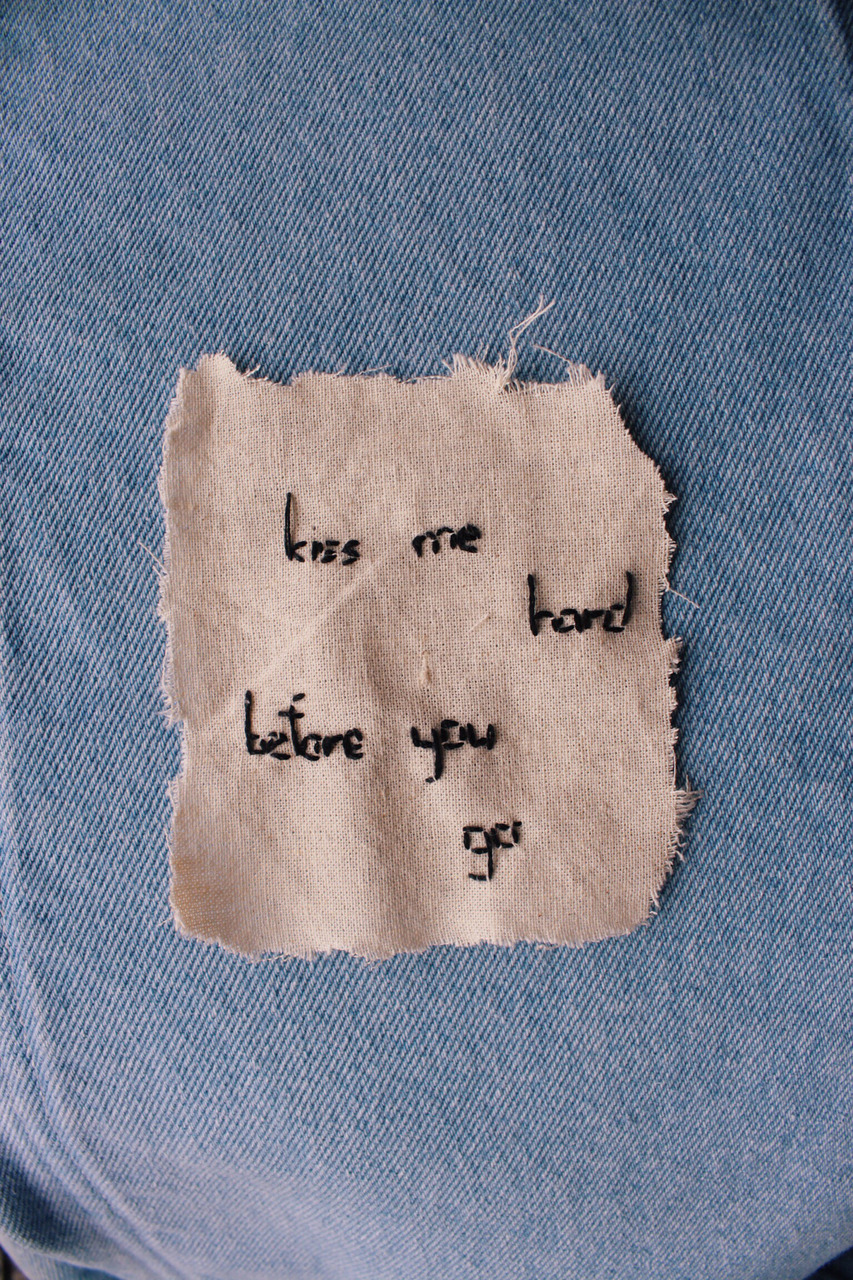 kiss me
hard
before you
go